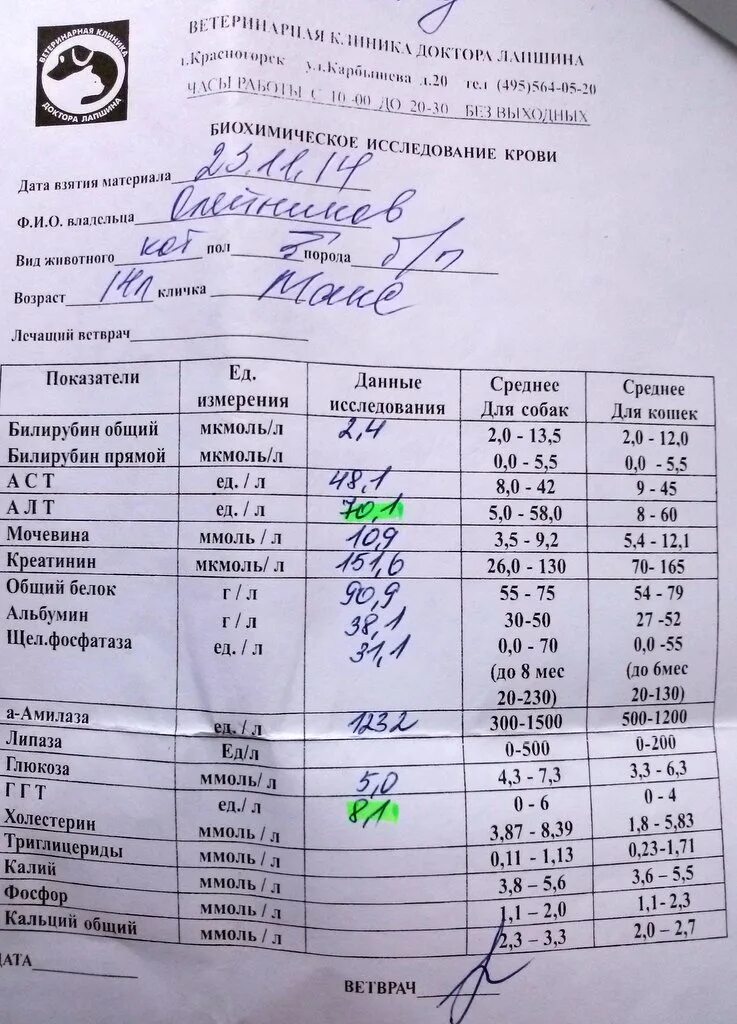 ВЕТЕРИНАРНАЯ КЛИНИКА
ДОКТОРА ЛАПШИНА
ВЕТЕРИНАРНАЯ КЛИНИКА ДОКТОРА ЛАПШИНА
г.Красногорск ул.Карбышева д.20 тел (495)564-05-20
ЧАСЫ РАБОТЫ С 10-00 ДО 20-30 БЕЗ ВЫХОДНЫХ
БИОХИМИЧЕСКОЕ ИССЛЕДОВАНИЕ КРОВИ
Дата взятия материала 23.11.14
Ф.И.О. владельца Олейников
Вид животного кот пол порода б/п
Возраст 14л кличка Макс
Лечащий ветврач
Показатели Ед. измерения Данные исследования Среднее Для собак Среднее Для кошек
Билирубин общий мкмоль/л 2,4 2,0 - 13,5 2,0 - 12,0
Билирубин прямой мкмоль/л 0,0 - 5,5 0,0 - 5,5
АСТ ед. / л 48,1 8,0 - 42 9 - 45
АЛТ ед. / л 70,1 5,0 - 58,0 8 - 60
Мочевина ммоль / л 10,9 3,5 - 9,2 5,4 - 12,1
Креатинин мкмоль/ л 151,6 26,0 - 130 70- 165
Общий белок г / л 90,9 55 - 75 54 - 79
Альбумин г / л 38,1 30-50 27 -52
Щел.фосфатаза ед. / л 31,1 0,0 - 70 0,0 -55
(до 8 мес (до 6мес
20-230) 20-130)
а-Амилаза ед. / л 1232 300-1500 500-1200
Липаза Ед/л 0-500 0-200
Глюкоза ммоль/ л 5,0 4,3 - 7,3 3,3 - 6,3
ГГТ ед./ л 8,1 0 - 6 0 - 4
Холестерин ммоль / л 3,87 - 8,39 1,8 - 5,83
Триглицериды ммоль / л 0,11 - 1,13 0,23-1,71
Калий ммоль / л 3,8 – 5,6 3,6 – 5,5
Фосфор ммоль / л 1,1 – 2,0 1,1- 2,3
Кальций общий ммоль / л 2,3 – 3,3 2,0 – 2,7
ДАТА
ВЕТВРАЧ